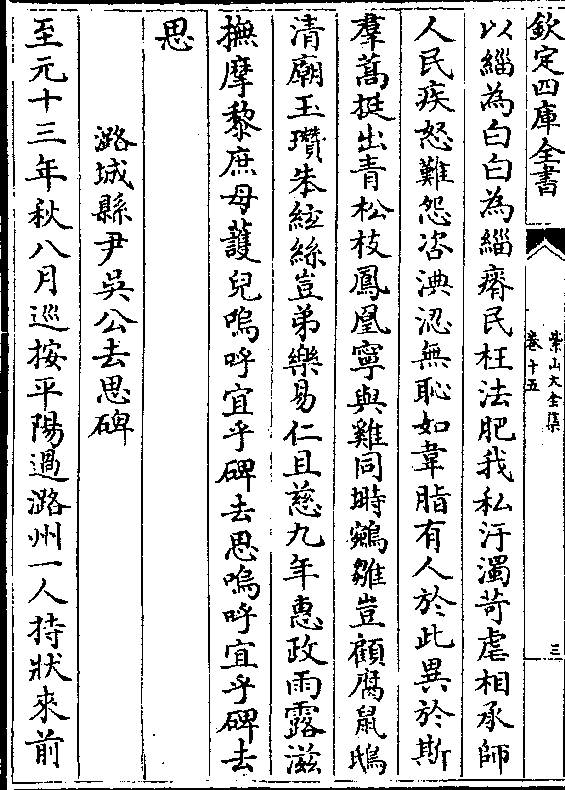 欽定四庫全書
紫山大全集
卷十五
三
以緇為白白為緇瘠民枉法肥我私汙濁苛虐相承師
人民疾怒難怨咨淟涊無恥如韋脂有人於此異於斯
羣蒿挺出青松枝鳳凰寧與雞同塒鵷雛豈顧腐鼠鴟
清廟玉瓚朱絃絲豈弟樂易仁且慈九年惠政雨露滋
撫摩黎庶母護兒嗚呼宜乎碑去思嗚呼宜乎碑去
思
潞城縣尹吳公去思碑
至元十三年秋八月巡按平陽過潞州一人持狀來前